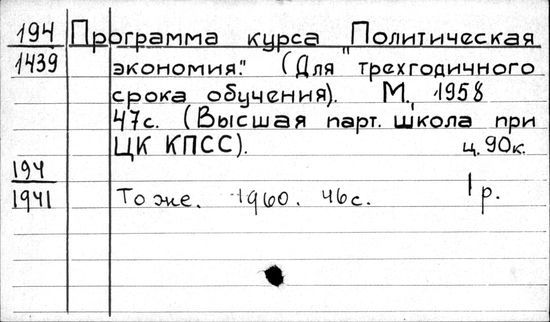 194 Программа курса "Политическая
1439 экономия." (Для трехгодичного
срока обучения). М., 1958
47с. (Высшая парт. школа при
ЦК КПСС). ц. 90к.
194
1941 То же. 1960. 46с. 1 р.